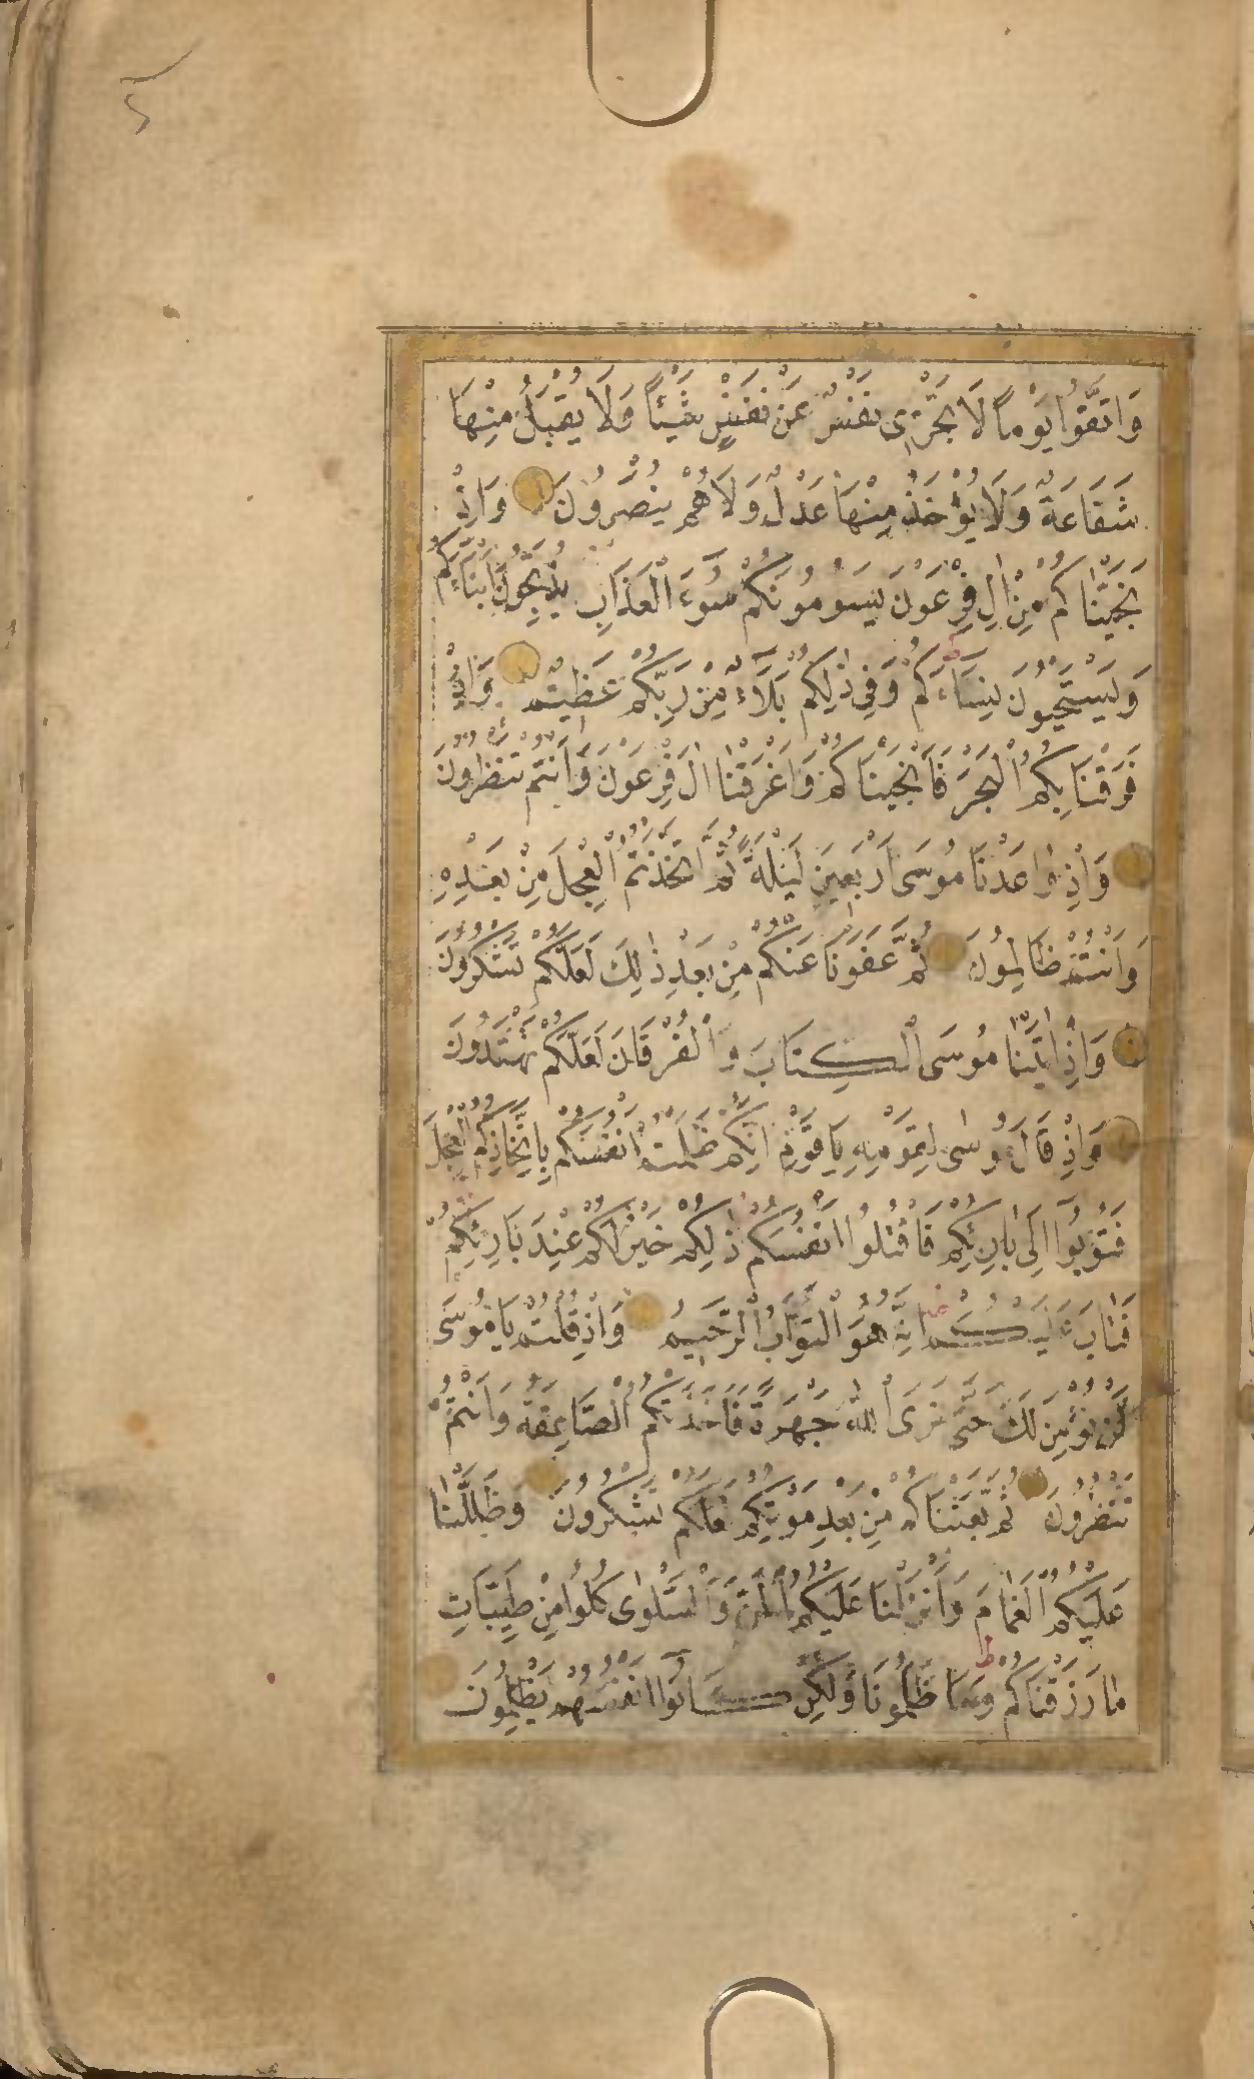 وَاتَّقُوا يَوْماً لَا تَجْزِي نَفْسٌ عَنْ نَفْسٍ شَيْئاً وَلَا يُقْبَلُ مِنْهَا
شَفَاعَةٌ وَلَا يُؤْخَذُ مِنْهَا عَدْلٌ وَلَا هُمْ يُنْصَرُونَ وَاِذْ
نَجَّيْنَاكُمْ مِنْ اٰلِ فِرْعَوْنَ يَسُومُونَكُمْ سُوٓءَ الْعَذَابِ يُذَبِّحُونَ اَبْنَاءَكُمْ
وَيَسْتَحْيُونَ نِسَاءَكُمْ وَفِي ذٰلِكُمْ بَلَاءٌ مِنْ رَبِّكُمْ عَظِيمٌ وَاِذْ
فَرَقْنَا بِكُمُ الْبَحْرَ فَاَنْجَيْنَاكُمْ وَاَغْرَقْنَا اٰلَ فِرْعَوْنَ وَاَنْتُمْ تَنْظُرُونَ
وَاِذْ وٰاعَدْنَا مُوسَى اَرْبَعِينَ لَيْلَةً ثُمَّ اتَّخَذْتُمُ الْعِجْلَ مِنْ بَعْدِهِ
وَاَنْتُمْ ظَالِمُونَ ثُمَّ عَفَوْنَا عَنْكُمْ مِنْ بَعْدِ ذٰلِكَ لَعَلَّكُمْ تَشْكُرُونَ
وَاِذْ اٰتَيْنَا مُوسَى الْكِتَابَ وَالْفُرْقَانَ لَعَلَّكُمْ تَهْتَدُونَ
وَاِذْ قَالَ مُوسٰى لِقَوْمِهِ يَاقَوْمِ اِنَّكُمْ ظَلَمْتُمْ اَنْفُسَكُمْ بِاتِّخَاذِكُمُ الْعِجْلَ
فَتُوبُوٓا اِلَى بَارِئِكُمْ فَاقْتُلُوا اَنْفُسَكُمْ ذٰلِكُمْ خَيْرٌ لَكُمْ عِنْدَ بَارِئِكُمْ
فَتَابَ عَلَيْكُمْ اِنَّهُ هُوَ التَّوَّابُ الرَّحِيمُ وَاِذْ قُلْتُمْ يَامُوسَى
لَنْ نُؤْمِنَ لَكَ حَتَّى نَرَى اللّٰهَ جَهْرَةً فَاَخَذَتْكُمُ الصَّاعِقَةُ وَاَنْتُمْ
تَنْظُرُونَ ثُمَّ بَعَثْنَاكُمْ مِنْ بَعْدِ مَوْتِكُمْ لَعَلَّكُمْ تَشْكُرُونَ وَظَلَّلْنَا
عَلَيْكُمُ الْغَمَامَ وَاَنْزَلْنَا عَلَيْكُمُ الْمَنَّ وَالسَّلْوٰى كُلُوا مِنْ طَيِّبَاتِ
مٰا رَزَقْنَاكُمْ وَمَا ظَلَمُونَا وَلَكِنْ كَانُوٓا اَنْفُسَهُمْ يَظْلِمُونَ